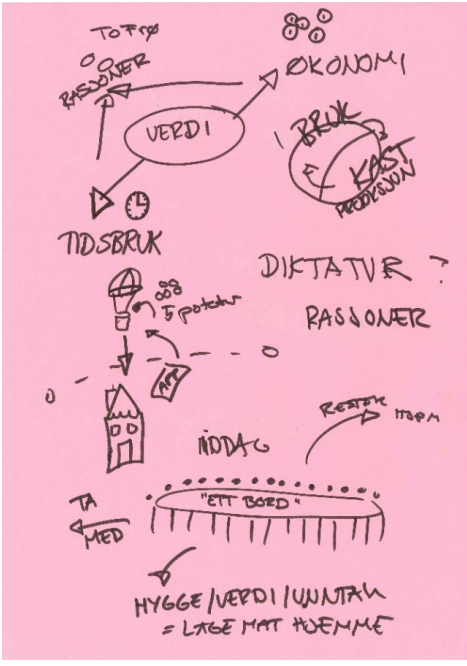 TO FRØ
RASJONER
ØKONOMI
VERDI
BRUK
KAST
PRODUKSJON
TIDSBRUK
DIKTATUR ?
5 poteter
RASJONER
APP
RESTER HJEM
MIDDAG
"ETT BORD"
TA
MED
HYGGE/VERDI/UNNTAK
= LAGE MAT HJEMME